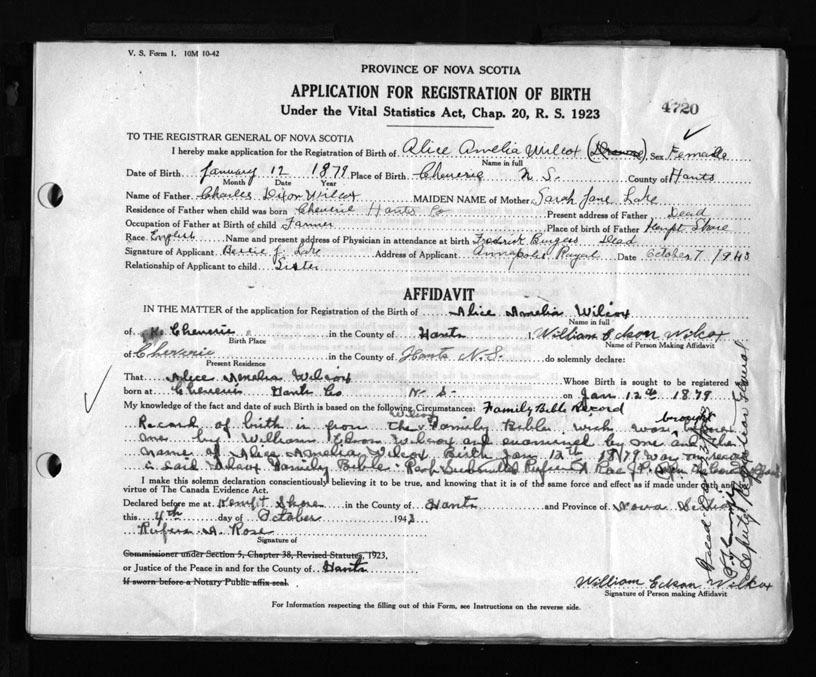 V. S. Form 1. 10M 10-42
PROVINCE OF NOVA SCOTIA
APPLICATION FOR REGISTRATION OF BIRTH
4720
Under the Vital Statistics Act, Chap. 20, R. S. 1923
TO THE REGISTRAR GENERAL OF NOVA SCOTIA
I hereby make application for the Registration of Birth of Alice Amelia Wilcox Sex Female
Name in full
Date of Birth January 12 1879 Place of Birth Cheverie N S. County of Hants
Month Date Year
Name of Father Charles Dixon Wilcox MAIDEN NAME of Mother Sarah Jane Lake
Residence of Father when child was born Cheverie Hants Co Present address of Father Dead
Occupation of Father at Birth of child Farmer Place of birth of Father Kempt Shore
Race English Name and present address of Physician in attendance at birth Fredrick Burgess Dead
Signature of Applicant Bessie J. Lake Address of Applicant Annapolis Royal Date October 7 1943
Relationship of Applicant to child Sister
AFFIDAVIT
IN THE MATTER of the application for Registration of the Birth of Alice Amelia Wilcox
Name in full
of Cheverie in the County of Hants I, William Eckon Wilcox
Birth Place Name of Person Making Affidavit
of Cheverie in the County of Hants N.S. do solemnly declare:
Present Residence
That Alice Amelia Wilcox Whose Birth is sought to be registered
born at Cheverie Hants Co N. S. on Jan 12th 1879
My knowledge of the fact and date of such Birth is based on the following Circumstances: Family Bible Record
Record of birth is from the Wilcox Family Bible, wich was brought before
me by William Wilcox and examined by me and the
name of Alice Amelia Wilcox Birth Jan 12th 1879 was on record
in said Wilcox Family Bible.
I make this solemn declaration conscientiously believing it to be true, and knowing that it is of the same force and effect as if made under oath and by
virtue of The Canada Evidence Act.
Declared before me at Kempt Shore in the County of Hants and Province of Nova Scotia
this 4th day of October 1943
Rufus A. Rose
Signature of
Commissioner under Section 5, Chapter 38, Revised Statutes, 1923,
or Justice of the Peace in and for the County of Hants
If sworn before a Notary Public affix seal.
William Eckon Wilcox
Signature of Person making Affidavit
For Information respecting the filling out of this Form, see Instructions on the reverse side.
Deputy Registrar General